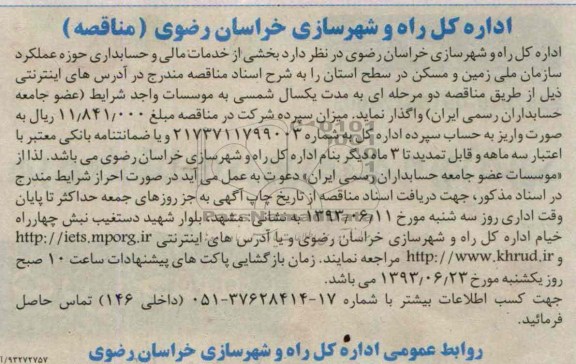 اداره کل راه و شهرسازی خراسان رضوی (مناقصه)
اداره کل راه و شهرسازی خراسان رضوی در نظر دارد بخشی از خدمات مالی و حسابداری حوزه عملکرد
سازمان ملی زمین و مسکن در سطح استان را به شرح اسناد مناقصه مندرج در آدرس های اینترنتی
ذیل از طریق مناقصه دو مرحله ای به مدت یکسال شمسی به موسسات واجد شرایط (عضو جامعه
حسابداران رسمی ایران) واگذار نماید. میزان سپرده شرکت در مناقصه مبلغ ۱۱٫۸۴۱٫۰۰۰ ریال به
صورت واریز به حساب سپرده اداره کل به شماره ۲۱۷۳۷۱۱۷۹۹۰۰۳ و یا ضمانتنامه بانکی معتبر با
اعتبار سه ماهه و قابل تمدید تا ۳ ماه دیگر بنام اداره کل راه و شهرسازی خراسان رضوی می باشد. لذا از
«موسسات عضو جامعه حسابداران رسمی ایران» دعوت به عمل می آید در صورت احراز شرایط مندرج
در اسناد مذکور، جهت دریافت اسناد مناقصه از تاریخ چاپ آگهی به جز روزهای جمعه حداکثر تا پایان
وقت اداری روز سه شنبه مورخ ۱۳۹۳٫۰۶٫۱۱ به نشانی: مشهد، بلوار شهید دستغیب نبش چهارراه
خیام اداره کل راه و شهرسازی خراسان رضوی و یا آدرس های اینترنتی http://iets.mporg.ir
و http://www.khrud.ir مراجعه نمایند. زمان بازگشایی پاکت های پیشنهادات ساعت ۱۰ صبح
روز یکشنبه مورخ ۱۳۹۳٫۰۶٫۲۳ می باشد.
جهت کسب اطلاعات بیشتر با شماره ۱۷-۳۷۶۲۸۴۱۴-۰۵۱ (داخلی ۱۴۶) تماس حاصل
فرمائید.
روابط عمومی اداره کل راه و شهرسازی خراسان رضوی
۹۳۲۷۲۷۵۷